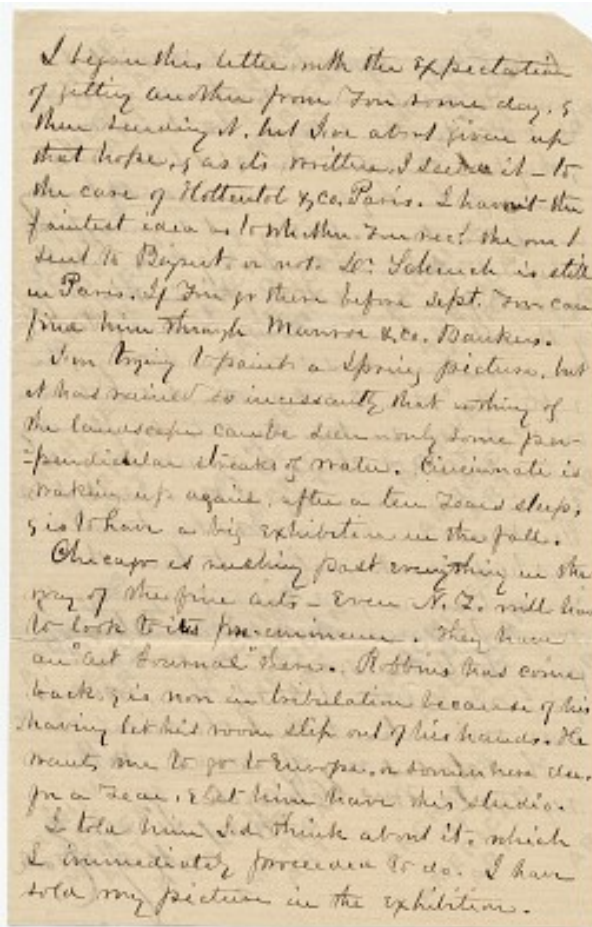 I began this letter with the expectation
of getting another from you some day, &
then sending it, but I've about given up
that hope, & as its written, I send it – to
the care of Hottentot & co. Paris. I havn't the
faintest idea as to whether you rec'd the one I
sent to Beyrut or not. Dr. is still
in Paris. If you go there before Sept. you can
find him through Munroe & co. Bankers.
I'm trying to paint a Spring picture, but
it has rained so incessantly that nothing of
the landscape can be seen only some per-
=pendicular streaks of water. Cincinnati is
waking up again, after a ten years sleep,
& is to have a big exhibition in the fall.
Chicago is rushing past everything in the
way of the fine arts – Even N.Y. will have
to look to its pre-eminence. They have
an "Art Journal" there. Robbins has come
back, & is now in tribulation because of his
having let his room slip out of his hands. He
wants me to go to Europe, or somewhere else,
for a year, & let him have this studio.
I told him I'd think about it, which
I immediately proceeded to do. I have
sold my picture in the exhibition.